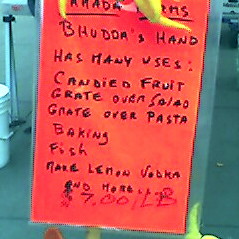 BHUDDA'S HAND
HAS MANY USES:
CANDIED FRUIT
GRATE OVER SALAD
GRATE OVER PASTA
BAKING
FISH
MAKE LEMON VODKA
AND MORE...
$7.00/LB